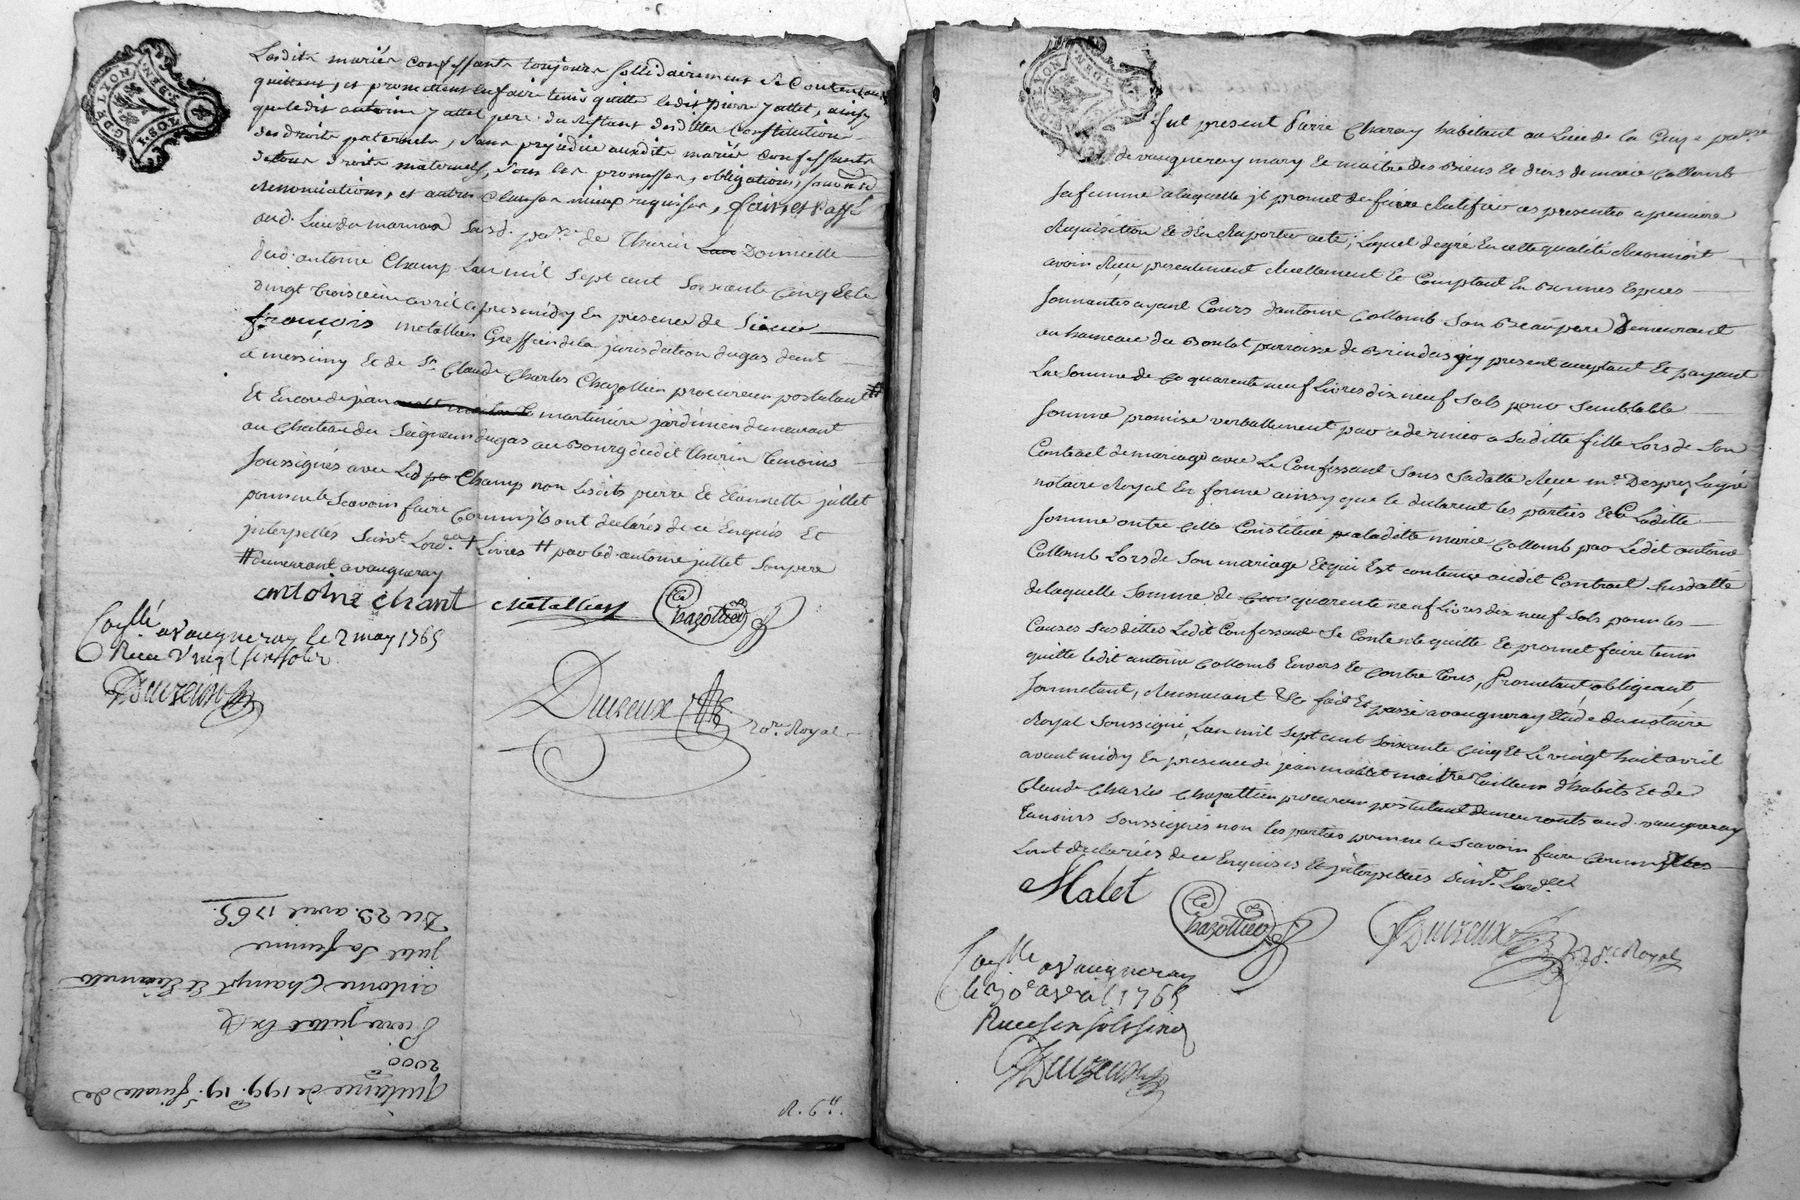 GDE LYON GEN.
TOBI
Lesdits mariés confessants toujours sollidairement se contentent
quittent, et promettent en faire tenir quitte ledit pierre jullet, ainsy
que ledit antoine jullet pere du restant desdittes Constitution
des droits paternels, sans prejudice auxdits mariés confessants
de tous droits maternels, sous les promesses, obligations, soum.on
Renonciations, et autres clauses mieux requises, fait, et passé
aud. Lieu du marnas susd. pa.sse de Thurin Domicille
dud. antoine Champ Lan mil sept cent soixante cinq et le
vingt troisieme avril apres midy En presence de Sieur
françois metallier Greffier de la jurisdiction dugas dem.t
a messimy et de S.r Claude Charles Chazottier procureur postulant #
Et Encore de jean martiniere jardinier demeurant
au chateau du Seigneur dugas au Bourg dudit Thurin temoins
soussignés avec Led Champ non lesdits pierre Et Etiennette jullet
pour ne le scavoir faire Comm'ils ont declarés de ce Enquis Et
interpellés Suiv.t Lord.ce + Livres # par led. antoine jullet son pere
# demeurant a vaugneray
antoine chant metallier Chazottier
Con.llé a Vaugneray le 2 may 1765
Receu Vingt six sols
Duvzeux
Duvzeux No.re Royal
Quitance de 199.tt 19.s faiste de
2000
Pierre jullet Ex a
antoine Champt Et Etiennette
julet Sa femme
Du 23. avril 1765.
R. 6.tt
GDE LYON GEN.
fut present Pierre Charay habitant au Lieu de la Guye pa.sse
de vaugneray mary Et maitre des Biens Et droits de marie Collomb
sa femme a laquelle il promet de faire Ratifier ces presentes a premiere
Requisition Et d'En Raporter acte; Lequel de gré En cette qualité Reconnoit
avoir Receu presentement Reellement Et Comptant En Bonnes Especes
Sonnantes ayant Cours d'antoine Collomb Son Beaupere Demeurant
au hameau du Boulat parroisse de Brindas icy present acceptant Et payant
La Somme de quarente neuf Livres dix neuf Sols pour Semblable
Somme promise verballement par ce dernier a Saditte fille Lors de Son
Contract de mariage avec Le Confessant Sous Sa datte Receu m.e Desprez Lagré
notaire Royal En forme ainsy que le declarent les parties Laditte
Somme outre celle Constituée a laditte marie Collomb par Ledit antoine
Collomb Lors de Son mariage Et qui Est contenue audit Contract Susdatté
de laquelle Somme de quarente neuf Livres dix neuf Sols pour les
Causes Susdittes Ledit Confessant Se Contente quitte Et promet faire tenir
quitte ledit antoine Collomb Envers Et contre tous, Promettant obligeant,
Soumettant, Renonceant &c fait Et passé a vaugneray Etude du notaire
Royal Soussigné, Lan mil Sept cent Soixante cinq Et Le vingt huit avril
avant midy En presence de jean mallet maitre Tailleur d'habits Et de
Claude Charles Chazottier procureur postulant demeurants aud. vaugneray
temoins Soussignés non les parties pour ne le Scavoir faire comm'elles
L'ont declarées de ce Enquises Et interpellées Suiv.t Lord.ce
Malet Chazottier Duvzeux No.re Royal
Con.llé a Vaugneray
le 30.e avril 1765
Receu six sols six d
Duvzeux